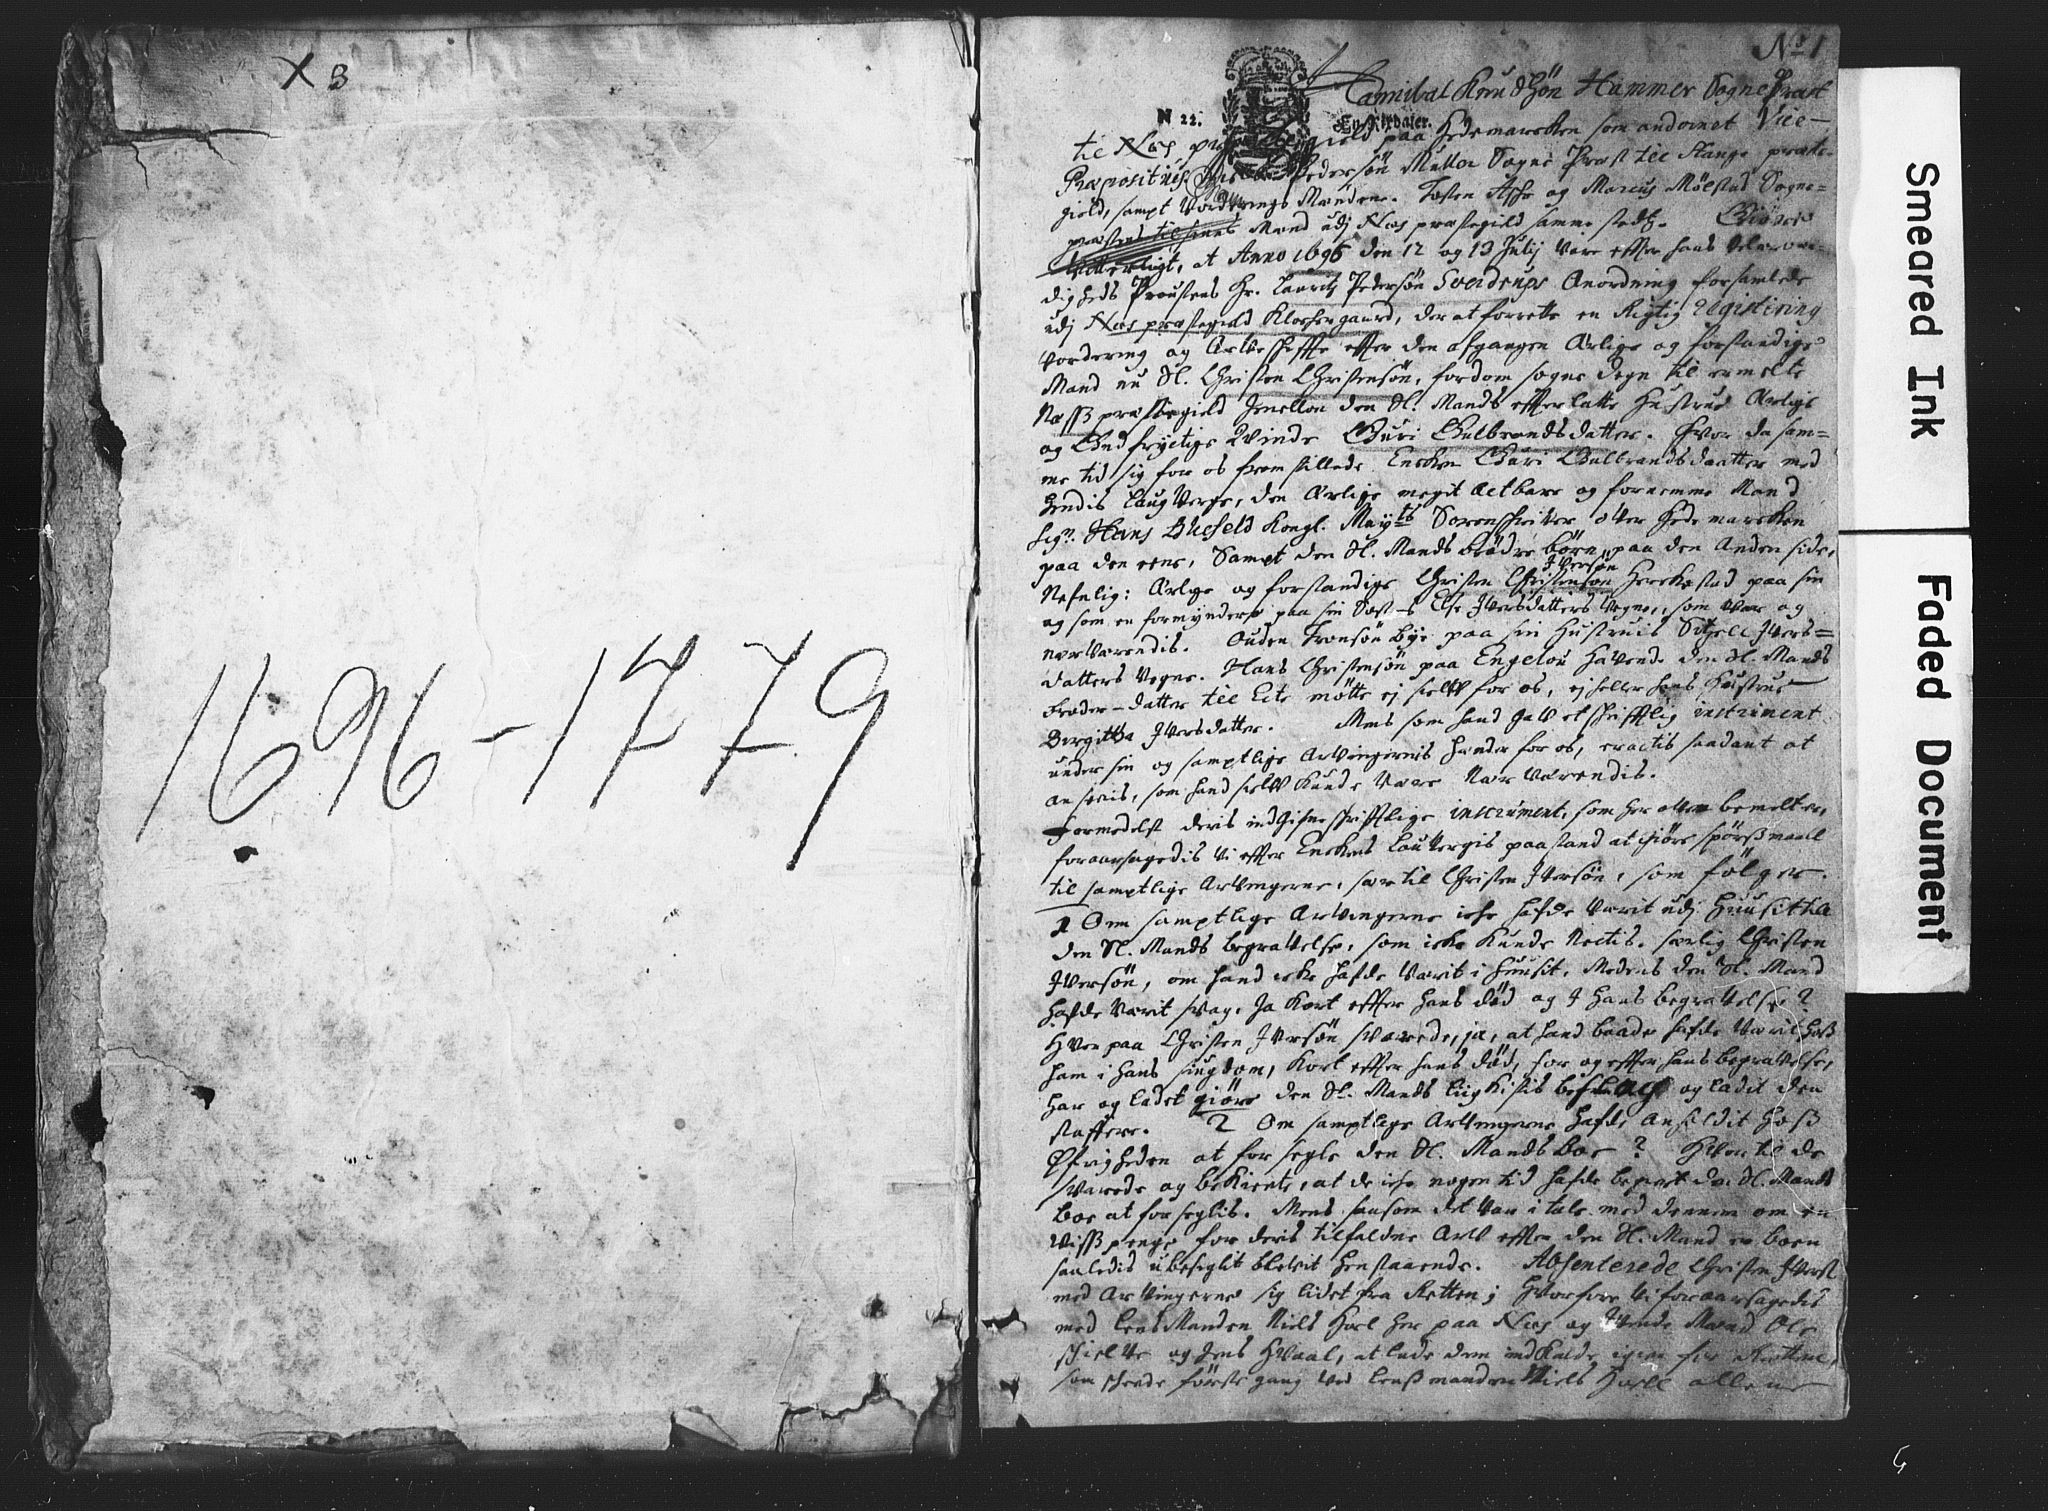 X 3
1696-1779
No 1
N 22.
En Rixdaler.
Hannibal Knudsøn Hammer Sogne Præst
til Næs paa Hedemarcken som anordnet Vice-
Præpositus, Pedersøn Muller Sogne Præst til Stange præste-
gield, sampt Vorderings Mændene. Tosten og Marcus Mølstad Sogne-
præstens til Mænd udj Næs præstegield samme stedtz. Giøre
Vitterligt, at Anno 1696 den 12 og 13 Julij Vare effter hans Velærvær-
digheds Proustens Hr. Lauritz Pedersøn Sverdrups Anordning forsamlede
udj Næs præstegield Klochergaard, der at forrette en Rigtig Registering
Vordering og Arfveschiffte effter den afgangen Ærlige og forstandige
Mand nu Sl. Christen Christensøn, fordom sogne degn til ermelte
Næss præstegield Jmellom den Sl. Mands effterlatte Hustrue Ærlige
og Gudfrygtige Qvinde Guri Gulbrandsdatter. Hvor da sam-
me tid sig for os frem stillede Encken Guri Gulbrandsdaatter med
hendis laug Verge, den Ærlige megit actbare og fornemme Mand
Sigr. Hans Kongl. Mayts Sorenschriver over Hedemarcken
paa den eene, Sampt den Sl. Mands brødre børn paa den Anden side,
Iversøn
Nefnlig: Ærlige og forstandige Christen Christensøn Herckestad paa sin
og som en formynder paa sin Søst-s Else Iversdatters Vegne, som var og
nerværendis. Ouden Tronsøn Bye paa sin Hustruis Sitzell Ivers=
datters Vegne. Hans Christensøn paa Engelou hafvende den Sl. Mands
broder-datter til Ecte møtte ej sielf for os, ej heller hans Hustrue
Birgitta Iversdatter. Mens som hand gaf et schrifftlig instriment
under sin og samptlige Arvingernis hænder for os, eractis saadant at
ansees, som hand sielf Kunde Være Nærværendis.
Formedelst deris indgifne schrifftlige instrument, som her bemelt er,
foraarsagedis Vi effter Enckens Lauvergis paastand at giøre spørssmaal
til samptlige Arvingerne, sær til Christen Iversøn, som følger.
1 Om samptlige Arvingerne icke hafde Værit udj Huusit til
den Sl. Mands begravelse, som icke Kunde Nectis. særlig Christen
Iversøn, om hand icke hafde Værit i Huusit, Medens den Sl. Mand
hafde Værit svag, Ja Kort effter hans død og I hans begravelse?
Hvor paa Christen Iversøn svarede, ja, at hand baade hafde Værit hoss
ham i hans siugdom, Kort effter hans død, for og effter hans begravelse,
har og ladet giøre den Sl. Mands liig Kistis beslag og ladit den
staffere. 2 Om samptlige Arvingerne hafde anholdit hoss
Øfrigheden at for segle den Sl. Mands boe? Hvor til de
svarede og bekiente, at de icke nogen tid hafde begiert den Sl. Mands
boe at for seglis. Mens saasom det Var i tale med dennem om en
Viss penge for deris tilfaldne Arv effter den Sl. Mand er boen
saaledis ubeseglit blevit henstaaende. Absenterede Christen Iversøn
med Arvingerne sig lidet fra Retten; Hvorfore Vi foraarsagedis
med LensManden Niels Hoel her paa Næs og Mænd Ole
og Jens Hvaal, at lade dem indkalde igien for Rettene,
som scheede første gang ved Lenssmanden Niels Hoell allene
Smeared Ink
Faded Document